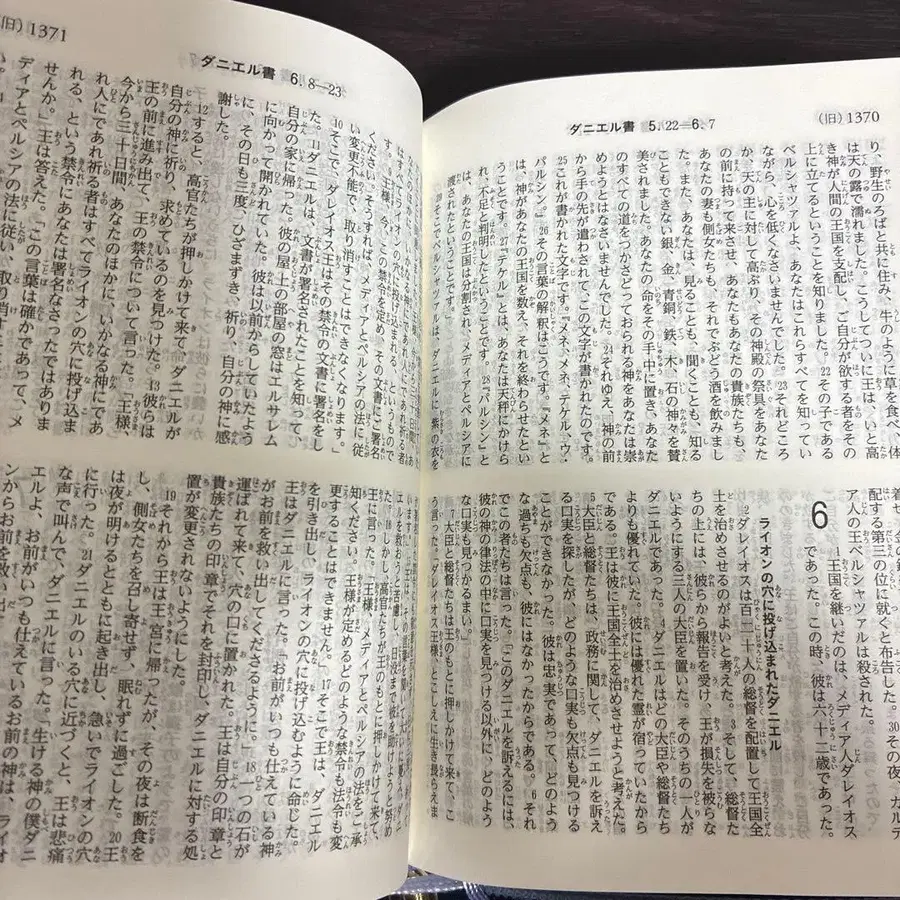 ダニエル書 5.22―6.7
(旧)1370
り、野生のろばと共に住み、牛のように草を食べ、体
は天の露で濡れました。こうしてついに王は、いと高
き神が人間の王国を支配し、ご自分が欲する者をその
上に立てるということを知りました。22その子である
ベルシャツァルよ、あなたはこれらすべてを知ってい
ながら、心を低くなさいませんでした。23それどころ
か、天の主に対して高ぶり、その神殿の祭具をあなた
の前に持って来させ、あなたもあなたの貴族たちも、
あなたの妻も側女たちも、それでぶどう酒を飲みまし
た。また、あなたは、見ることも、聞くことも、知る
こともできない銀、金、青銅、鉄、木、石の神々を賛
美されました。あなたの命をその手中に置き、あなた
のすべての道をつかさどっておられる神をあなたは崇
めようとはなさいませんでした。24それゆえ、神の前
から手の先が遣わされて、この文字が書かれたのです。
25これが書かれた文字です。『メネ、メネ、テケル、ウ・
パルシン。』26その言葉の解釈はこうです。『メネ』と
は、神があなたの王国を数え、それを終わらせたとい
うことです。27『テケル』とは、あなたは天秤にかけら
れ、不足と判明したということです。28『パルシン』と
は、あなたの王国は分割され、メディアとペルシアに
渡されたということです。」
29そこでベルシャツァルは命じて、ダニエルに紫の衣を
配する第三の位に就くと布告した。30その夜、カルデ
ア人の王ベルシャツァルは殺された。
6
1王国を継いだのは、メディア人ダレイオス
であった。この時、彼は六十二歳であった。
ライオンの穴に投げ込まれたダニエル
2ダレイオスは百二十人の総督を配置して王国全
土を治めさせるのがよいと考えた。3そして、総督た
ちの上には、彼らから報告を受け、王が損失を被らな
いようにする三人の大臣を置いた。そのうちの一人が
ダニエルであった。4ダニエルはどの大臣や総督たち
よりも優れていた。彼には優れた霊が宿っていたから
である。王は彼に王国全土を治めさせようと考えた。
5大臣と総督たちは、政務に関して、ダニエルを訴え
る口実を探したが、どのような口実も欠点も見つける
ことができなかった。彼は忠実であって、それ
な過ちも欠点も、彼にはなかったからである。6それ
でこの者たちは言った。「このダニエルを訴えるには、
彼の神の律法の中に口実を見つける以外に、どのよう
な口実も見つかるまい。」
7大臣と総督たちは王のもとに押しかけて来て、こ
う言った。「ダレイオス王様、とこしえに生き長らえま
(旧)1371
ダニエル書 6.8―23
はすべてライオンの穴に投げ込まれる、というもので
す。9王様、今、この禁令を定め、その文書にご署名
ください。そうすれば、メディアとペルシアの法に従
い変更不能で、取り消すことはできなくなります。」
10そこで、ダレイオス王はその禁令の文書に署名をし
た。11ダニエルは、文書が署名されたことを知って、
自分の家に帰った。彼の屋上の部屋の窓はエルサレム
に向かって開かれていた。彼は以前からしていたよう
に、その日も三度、ひざまずき、祈り、自分の神に感
謝した。
12すると、高官たちが押しかけて来て、ダニエルが
自分の神に祈り、求めているのを見つけた。13彼らは
王の前に進み出て、王の禁令について言った。「王様、
今から三十日間、あなたのほかに、いかなる神にであ
れ人にであれ祈る者はすべてライオンの穴に投げ込ま
れる、という禁令にあなたは署名なさったではありま
せんか。」王は答えた。「この言葉は確かであって、メ
ディアとペルシアの法に従い、取り消す
エルを救おうと苦慮し、日没まで彼を助けようと努め
た。16しかし、高官たちは王のもとに押しかけて来て、
王に言った。「王様、メディアとペルシアの法をご承
知ください。王様が定めるどのような禁令も法令も変
更することはできません。」17そこで王は、ダニエル
を引き出し、ライオンの穴に投げ込むように命じた。
王はダニエルに言った。「お前がいつも仕えている神
がお前を救い出してくださるように。」18一つの石が
運ばれて来て、穴の口に置かれた。王は自分の印章と
貴族たちの印章でそれを封印し、ダニエルに対する処
置が変更されないようにした。
19それから王は王宮に帰ったが、その夜は断食を
し、側女たちを召し寄せず、眠れずに過ごした。20王
は夜が明けるとともに起き出し、急いでライオンの穴
に行った。21ダニエルのいる穴に近づくと、王は悲痛
な声で叫んで、ダニエルに言った。「生ける神の僕ダニ
エルよ、お前がいつも仕えているお前の神は、ライオ
ンからお前を救い